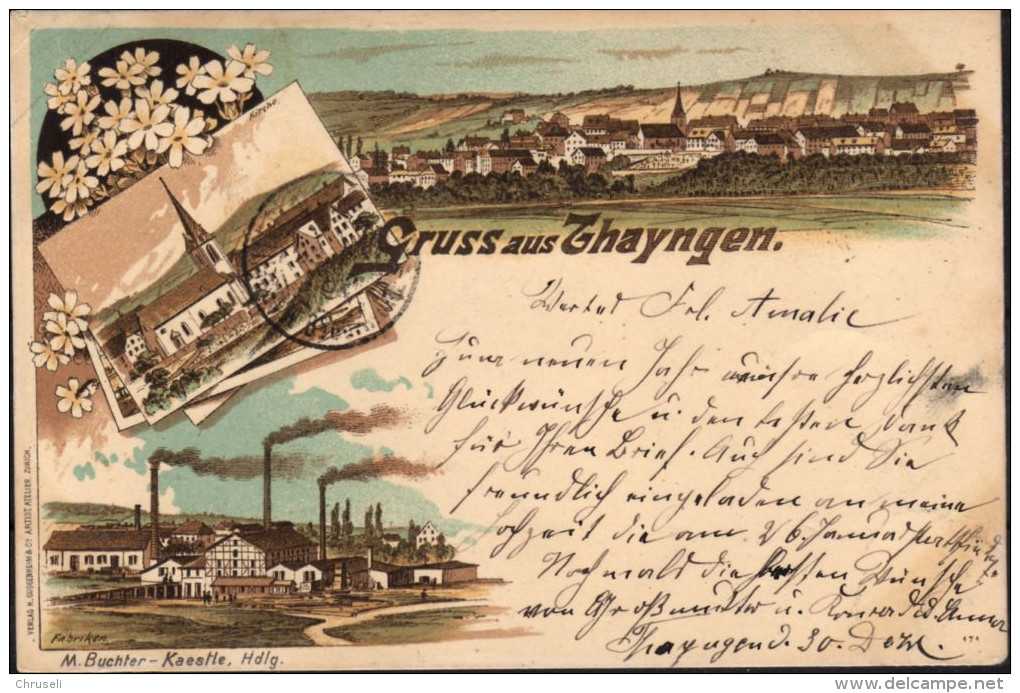 Kirche.
Gruss aus Thayngen.
Wertes Frl. Amalie
Zum neuen Jahr unsre herzlichsten
Glückwünsche u. den besten Dank
für Ihren Brief. Auch sind Sie
freundlich eingeladen an meine
Hochzeit die am 26. Januar stattfindet.
Nochmals die besten Wünsche
von Großmutter u.
Thayngen d. 30. Dez.
171
Fabriken.
M. Buchter-Kaestle, Hdlg.
VERLAG H. GUGGENHEIM & Co ARTIST. ATELIER, ZÜRICH.
© Chruseli
delcampe.net